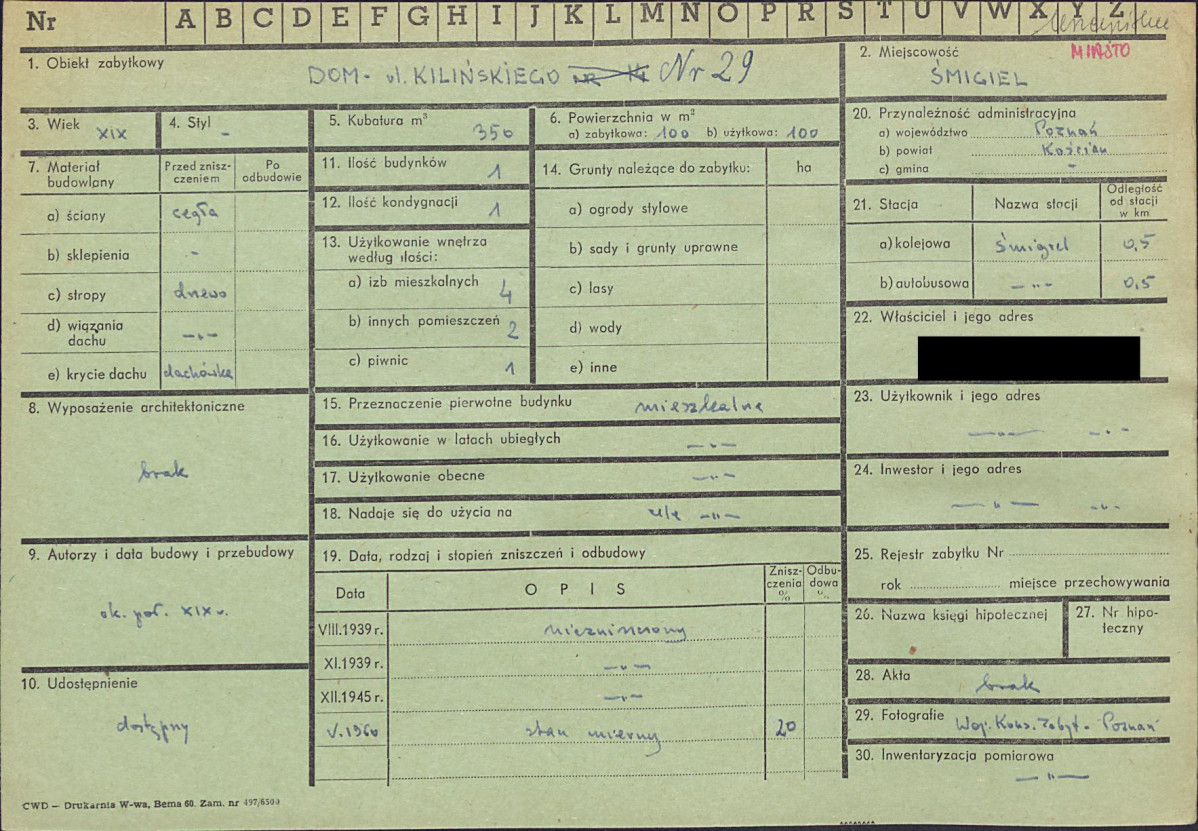 Nr A B C D E F G H I J K L M N O P R S T U V W X Y Z
MIASTO
1. Obiekt zabytkowy DOM - ul. KILIŃSKIEGO Nr 29
2. Miejscowość ŚMIGIEL
3. Wiek XIX
4. Styl -
5. Kubatura m³ 350
6. Powierzchnia w m²
a) zabytkowa: 100 b) użytkowa: 100
20. Przynależność administracyjna
a) województwo Poznań
b) powiat Kościan
c) gmina -
7. Materiał budowlany
Przed zniszczeniem
Po odbudowie
a) ściany cegła
b) sklepienia -
c) stropy drewo
d) wiązania dachu -„-
e) krycie dachu dachówka
11. Ilość budynków 1
12. Ilość kondygnacji 1
13. Użytkowanie wnętrza
według ilości:
a) izb mieszkalnych 4
b) innych pomieszczeń 2
c) piwnic 1
14. Grunty należące do zabytku: ha
a) ogrody stylowe
b) sady i grunty uprawne
c) lasy
d) wody
e) inne
21. Stacja
Nazwa stacji
Odległość od stacji w km
a) kolejowa Śmigiel 0,5
b) autobusowa -„- 0,5
22. Właściciel i jego adres
8. Wyposażenie architektoniczne
brak
15. Przeznaczenie pierwotne budynku mieszkalne
16. Użytkowanie w latach ubiegłych -„-
17. Użytkowanie obecne -„-
18. Nadaje się do użycia na -„-
23. Użytkownik i jego adres
-„- -„-
24. Inwestor i jego adres
-„- -„-
9. Autorzy i data budowy i przebudowy
ok. poł. XIX w.
10. Udostępnienie
dostępny
19. Data, rodzaj i stopień zniszczeń i odbudowy
Data OPIS Zniszczenia % Odbudowa %
VIII.1939 r. niezniszczony
XI.1939 r. -„-
XII.1945 r. -„-
V.1960 stan mierny 20
25. Rejestr zabytku Nr
rok miejsce przechowywania
26. Nazwa księgi hipotecznej
27. Nr hipoteczny
28. Akta brak
29. Fotografie Woj. Kons. Zabyt. - Poznań
30. Inwentaryzacja pomiarowa
-„-
CWD — Drukarnia W-wa, Bema 60. Zam. nr 497/6500